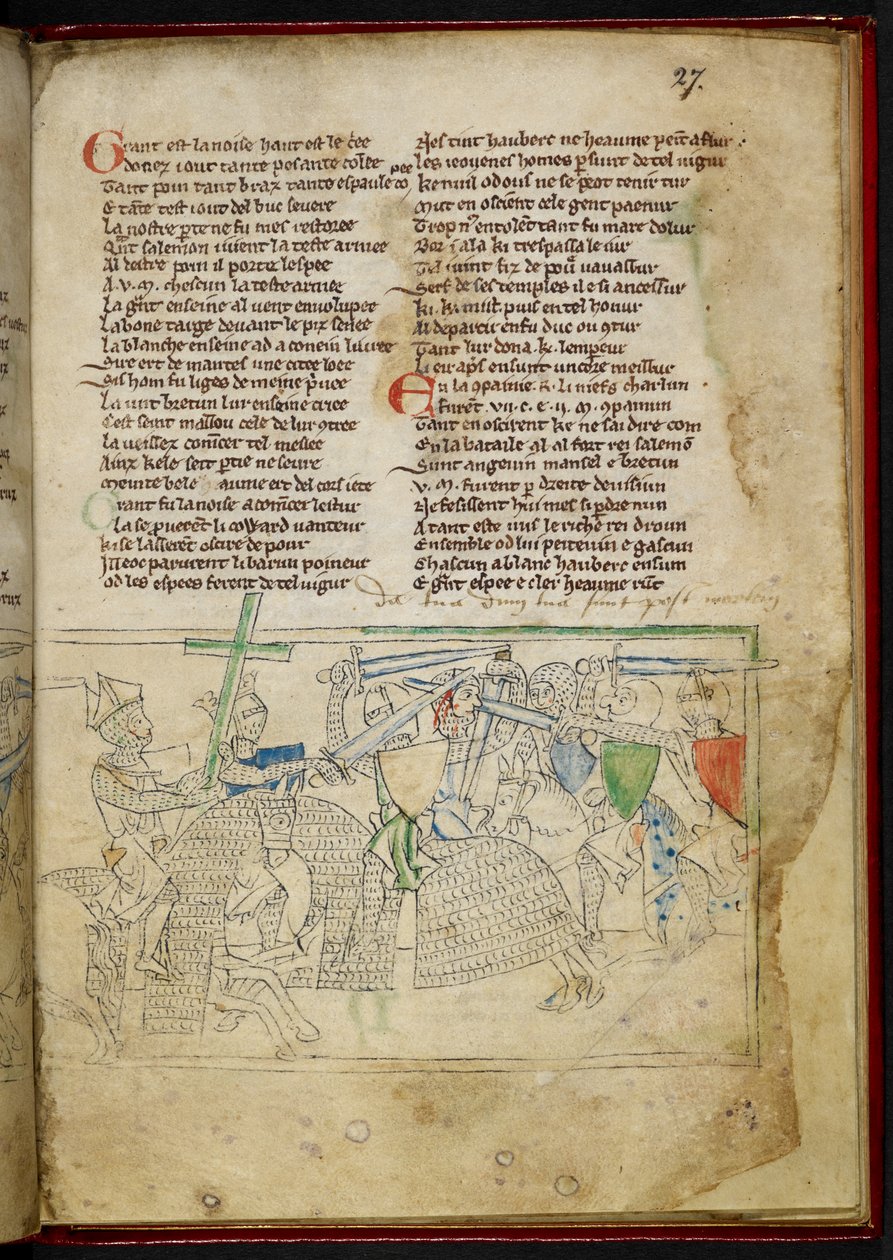 27.
Grant est la noise haut est le c̄ee
donez i out tante pesante colee
Tant poin tant braz tante espaule copee
E tāte test i out del buc seuere
La nostre perte ne fu mes restoree
Q̄nt salemon i uient la teste armee
Al destre poin il porte lespee
A .v. M. chescun la teste armee
La gͣnt enseine al uent enuolupee
La bone targe deuant le piz seree
La blanche enseine ad a conein liuree
Sire ert de nantes une citee loee
Sis hom fu liges de meine p̄uee
La unt bretun lur enseine criee
Cest seint mallou cele de lur 9tree
La ueissez com̄cer tel meslee
Ainz kele seit ꝑtie ne seuree
Meinte bele aume ert del cors ietee
Grant fu la noise a com̄cer lestur
La se ꝓuerēt li coward uanteur
Ki se lasserēt oscire de pour
Illeoc parurent li barun poineur
Od les espees ferent de tel uigur
Nes tint hauberc ne heaume peīt a flur
Les ieouenes homes ꝑ sunt de tel uigur
Ke nuil od ous ne se peot tenir
Mut en oscient cele gent paenur
Trop nͥ entolēt tant fu mare dolur
Bor i ala ki trespassa le iur
Tel i uint fiz de pouͣ uauassur
Serf de ses temples il e si ancessur
Ki .K. mist puis en tel honur
Al departir en fu duc ou
Tant lur dona .K. lempeur
Li eir ap̄s en sunt uncore meillur
En la 9painie .K. li nies charlun
furēt .VII. c. e .II. M. 9painun
Tant en oscirent ke ne sai dire com
En la bataile al al fort rei salemō
Sunt angeuin mansel e bretun
V. M. furent ꝑ dreite deuisiun
Ne fesissent hui mes si ꝑdre nun
A tant este uus le riche rei droun
Ensemble od lui peiteuin e gascun
Chascun a blanc hauberc ensum
E gͣnt espee e cler heaume rūt
tua tua sunt post mortem